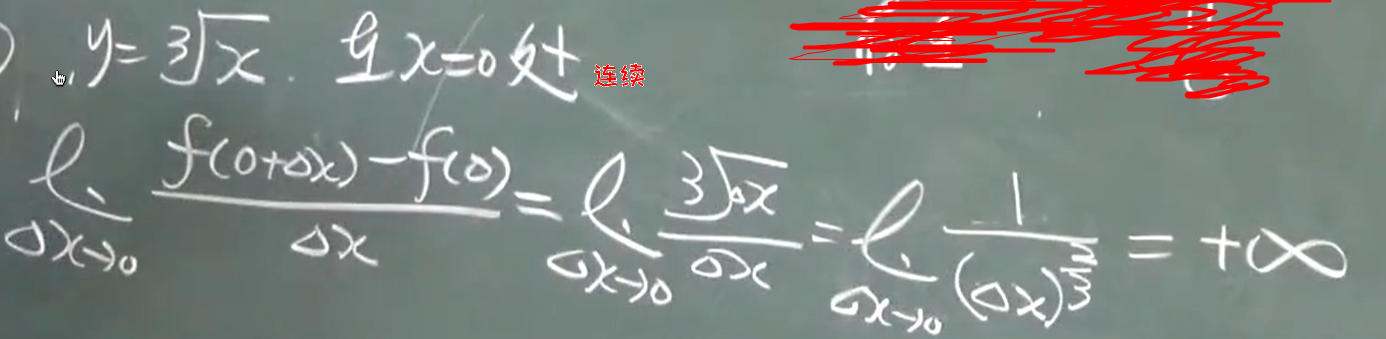 y=∛x. 在x=0处 连续
lim Δx→0 f(0+Δx)-f(0) / Δx = lim Δx→0 ∛Δx / Δx = lim Δx→0 1 / (Δx)^(2/3) = +∞